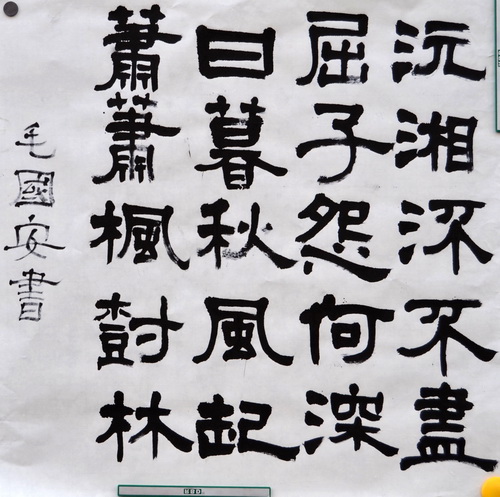 沅湘流不盡
屈子怨何深
日暮秋風起
蕭蕭楓樹林
毛國安書